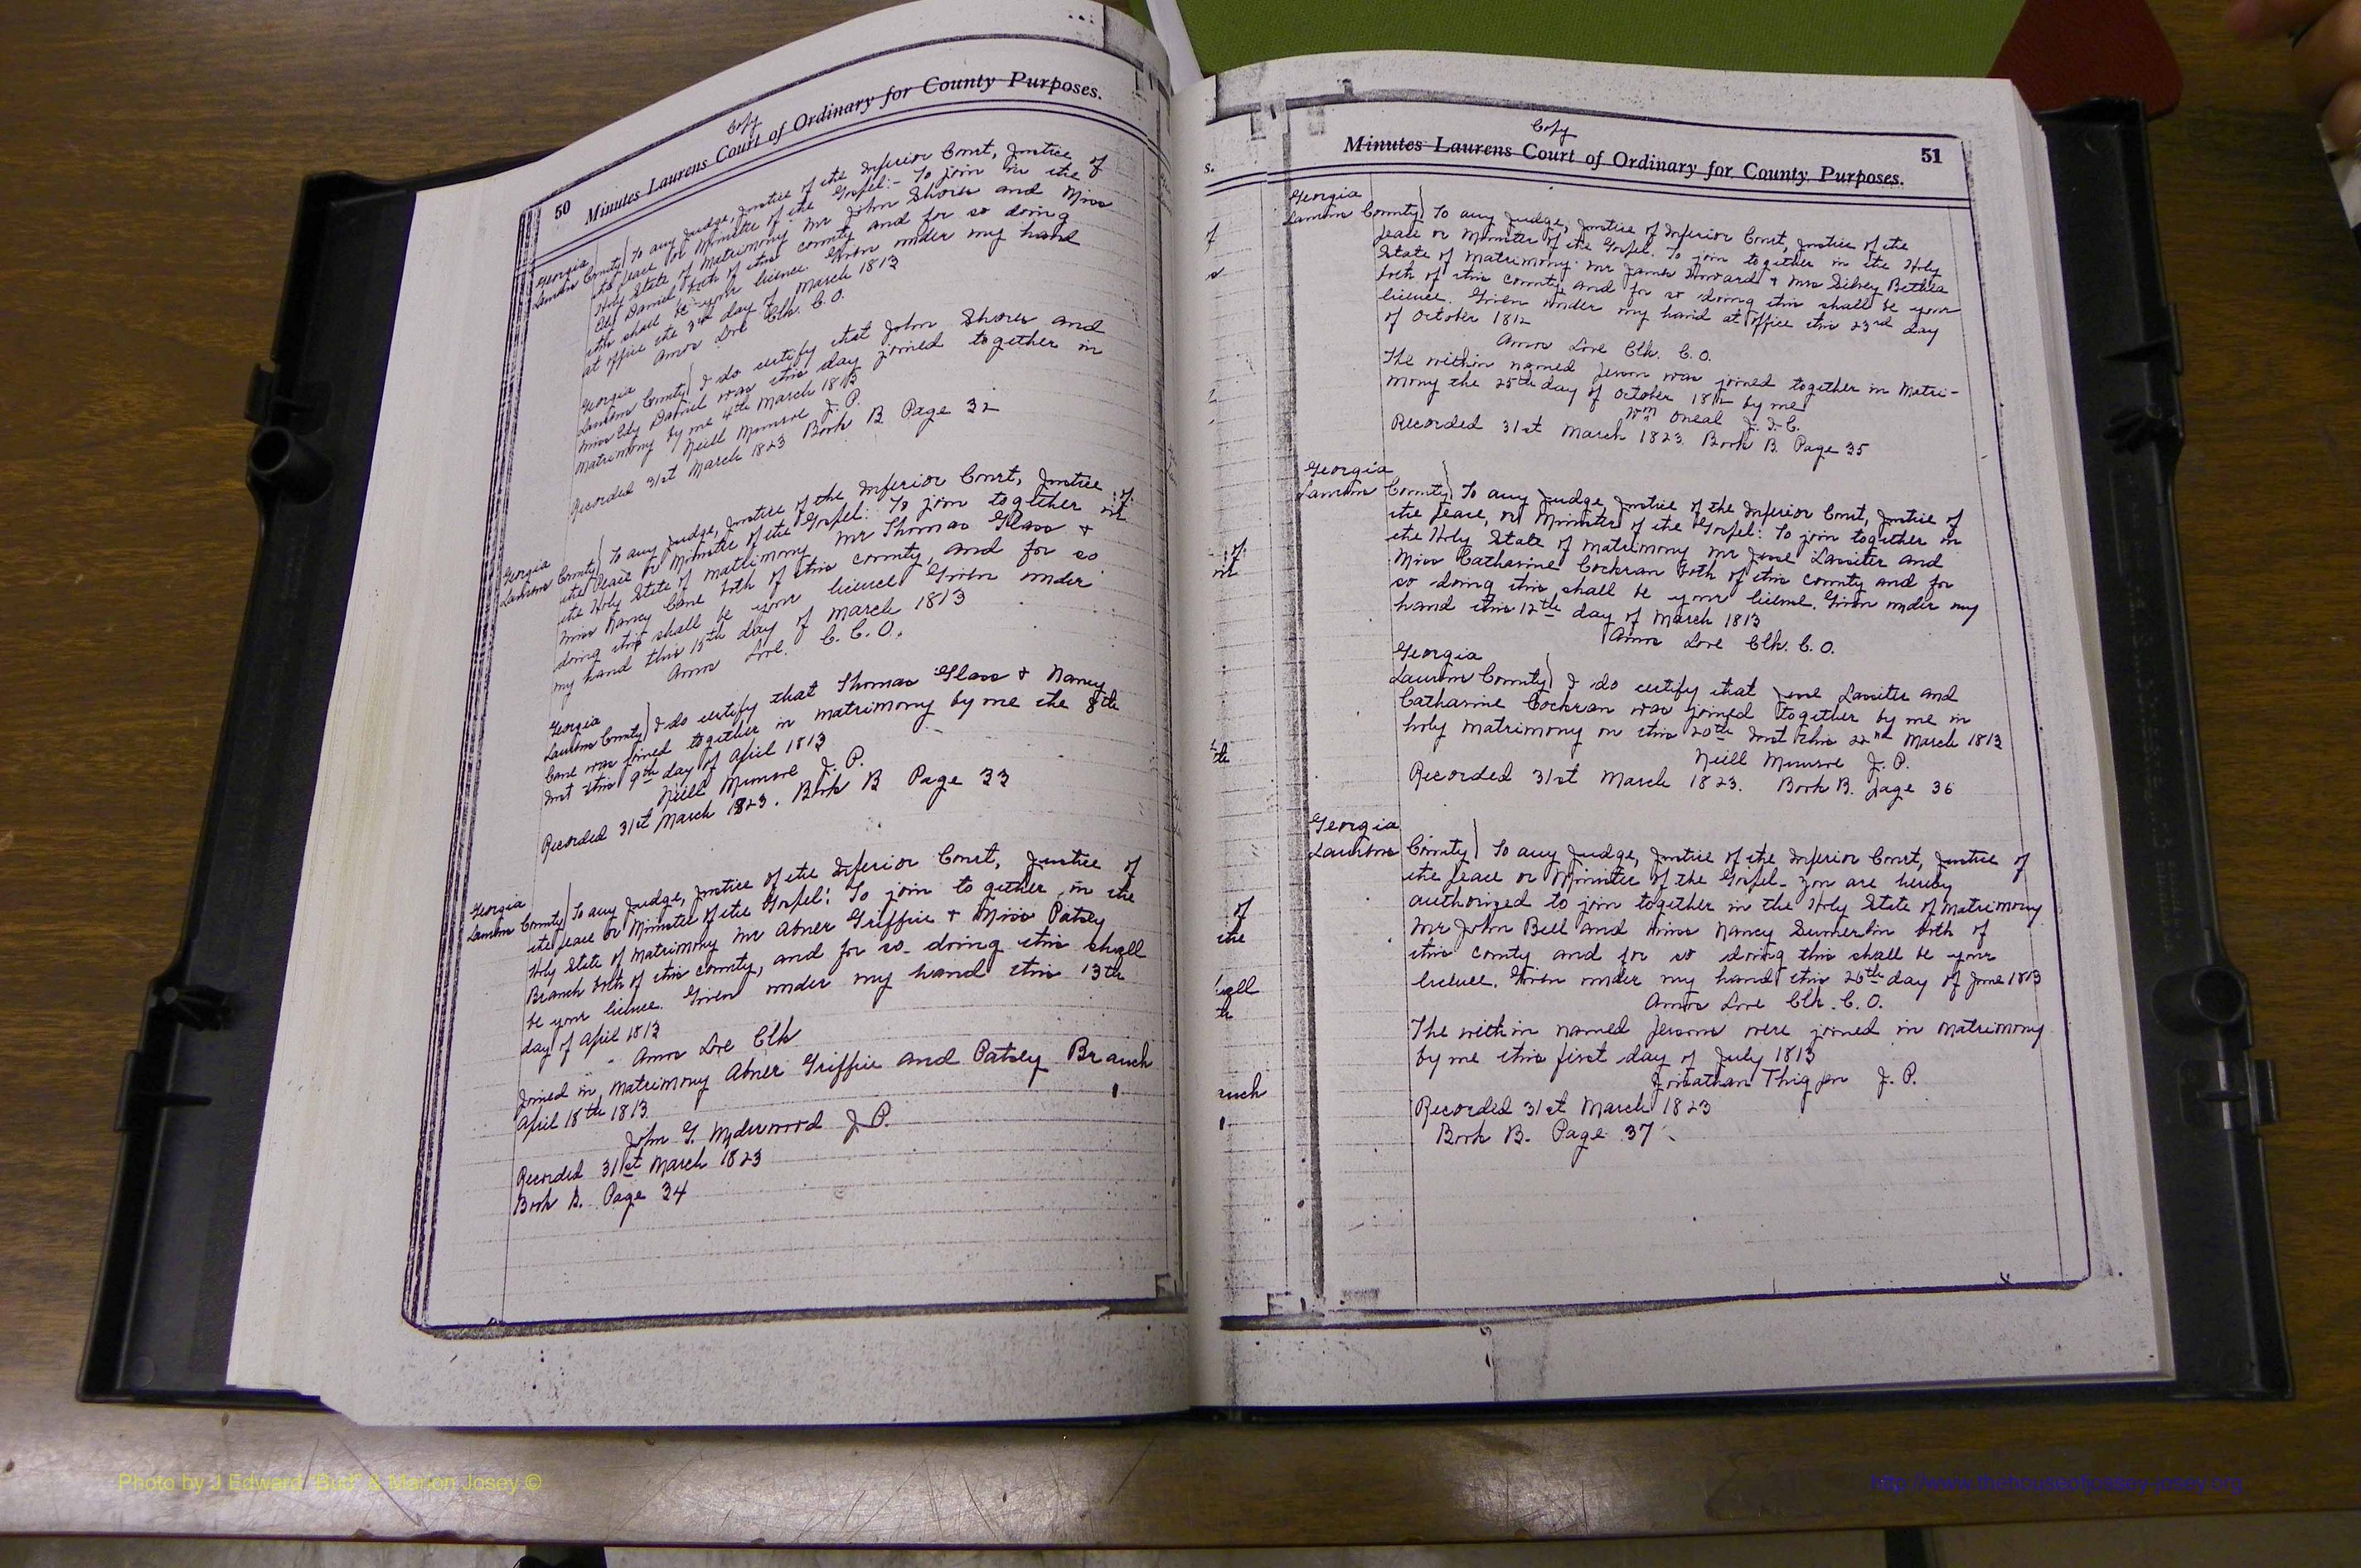 Copy
50 Minutes Laurens Court of Ordinary for County Purposes.
Georgia
Laurens County) To any Judge, Justice of the Inferior Court, Justice of
the Peace or Minister of the Gospel:- To join in the
Holy State of Matrimony Mr John Shores and Miss
Edy Daniel both of this county and for so doing
this shall be your licence. Given under my hand
at office the 3rd day of March 1813
Amos Love Clk. C.O.
Georgia
Laurens County) I do certify that John Shores and
Miss Edy Daniel was this day joined together in
Matrimony by me 4th March 1813
Neill Munroe J.P.
Recorded 31st March 1823 Book B Page 32
Georgia
Laurens County) To any Judge, Justice of the Inferior Court, Justice of
the Peace or Minister of the Gospel: To join together in
the Holy State of matrimony Mr Thomas Glass +
Miss Nancy Cane both of this county, and for so
doing this shall be your licence. Given under
my hand this 15th day of March 1813
Amos Love. C.C.O.
Georgia
Laurens County) I do certify that Thomas Glass + Nancy
Cane was joined together in matrimony by me the 8th
Inst this 9th day of April 1813
Neill Munroe J.P.
Recorded 31st March 1823. Book B Page 33
Georgia
Laurens County) To any Judge, Justice of the Inferior Court, Justice of
the Peace or Minister of the Gospel: To join to gether in the
Holy State of Matrimony Mr Abner Griffie + Miss Patsey
Branch both of this county, and for so doing this shall
be your licence. Given under my hand this 13th
day of April 1813
Amos Love Clk
Joined in Matrimony Abner Griffie and Patsey Branch
April 18th 1813
John G. Underwood J.P.
Recorded 31st March 1823
Book B. Page 34
Copy
Minutes Laurens Court of Ordinary for County Purposes. 51
Georgia
Laurens County) To any Judge, Justice of Inferior Court, Justice of the
Peace or Minister of the Gospel. To join together in the Holy
State of Matrimony. Mr James Howard + Mrs Silvey Bethea
both of this county and for so doing this shall be your
licence. Given under my hand at office this 23rd day
of October 1812
Amos Love Clk. C.O.
The within named Person was joined together in Matri-
mony the 25th day of October 1812 by me
Wm Oneal J.I.C.
Recorded 31st March 1823. Book B. Page 35
Georgia
Laurens County) To any Judge, Justice of the Inferior Court, Justice of
the Peace, or Minister of the Gospel: To join together in
the Holy State of Matrimony Mr Jesse Lassiter and
Miss Catharine Cockran both of this county and for
so doing this shall be your licence. Given under my
hand this 12th day of March 1813
Amos Love Clk. C.O.
Georgia
Laurens County) I do certify that Jesse Lassiter and
Catharine Cockran was joined together by me in
holy matrimony on this 20th Inst this 22nd March 1813
Neill Munroe J.P.
Recorded 31st March 1823. Book B. Page 36
Georgia
Laurens County) To any Judge, Justice of the Inferior Court, Justice of
the Peace or Minister of the Gospel- You are hereby
authorized to join together in the Holy State of Matrimony
Mr John Bell and Miss Nancy Sumerlin both of
this county and for so doing this shall be your
licence. Given under my hand this 26th day of June 1813
Amos Love Clk. C.O.
The within named Persons were joined in matrimony
by me this first day of July 1813
Jonathan Thigpen J.P.
Recorded 31st March 1823
Book B. Page 37
Photo by J Edward "Bud" & Marion Josey ©
http://www.thehouseofjossey-josey.org